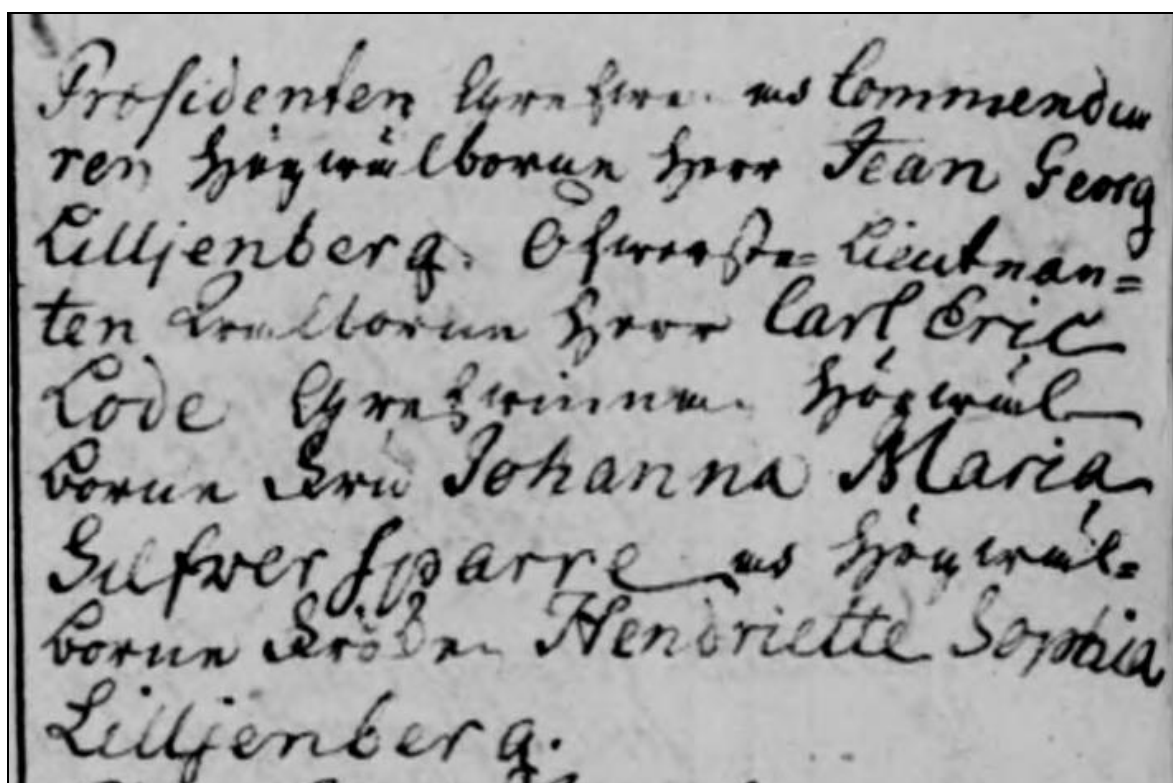 Presidenten Grefwe. och Commendeu
ren Högwälborne Herr Jean Georg
Lilljenberg. Öfwerste= Lieutnan=
ten wälborne Herr Carl Eric
Lode Grefwinnan Högwäl
borne Fru Johanna Maria
Silfwer Sparre och Högwäl=
borne Fröken Hendriette Sophia
Lilljenberg.